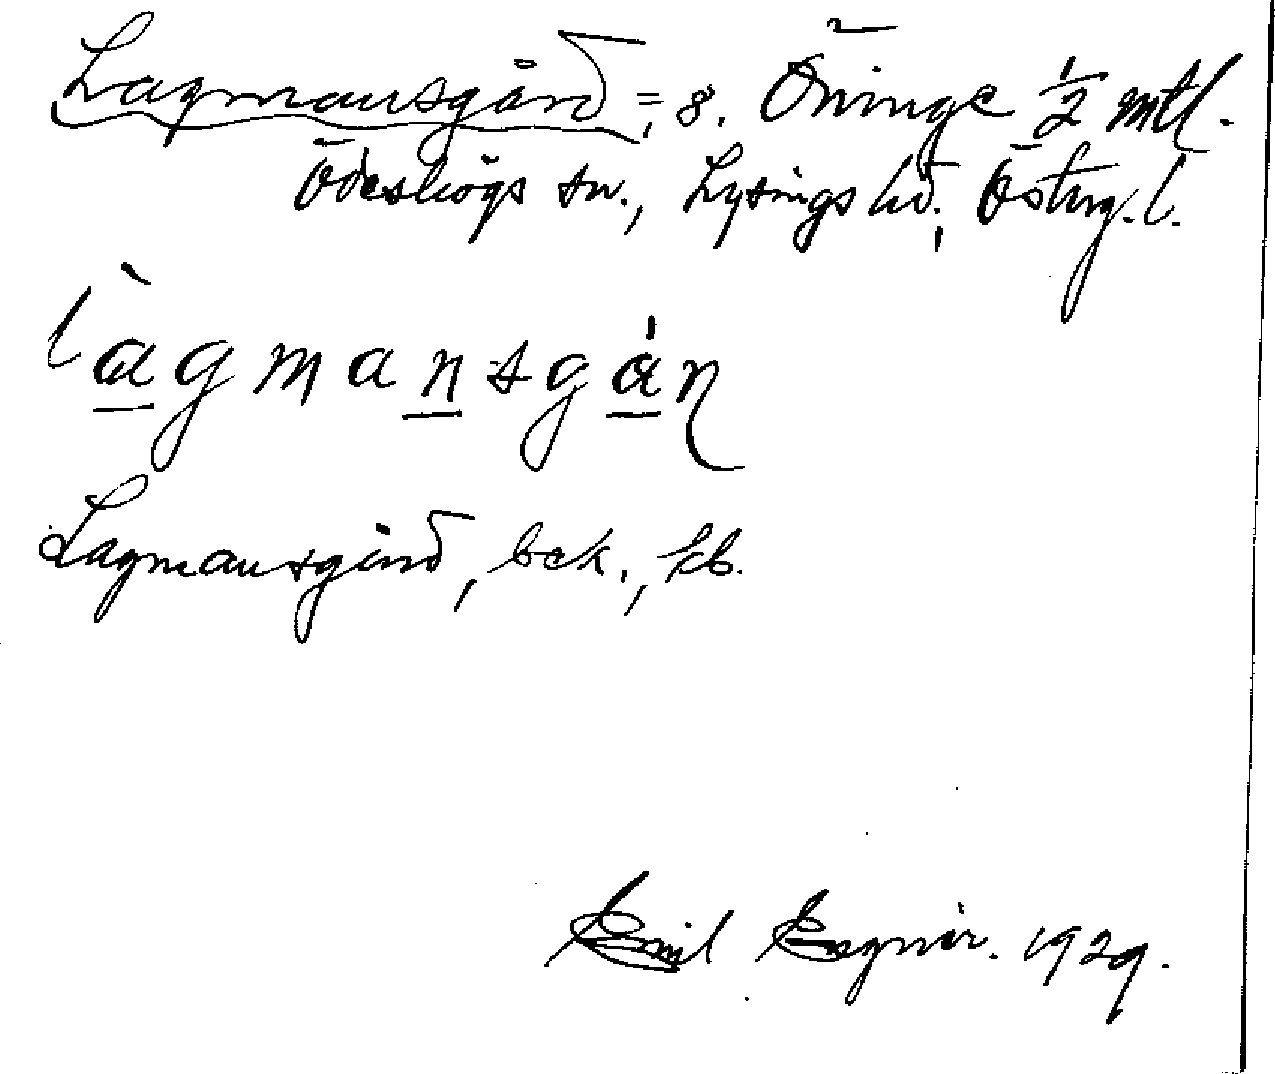 Lagmansgård =, 8. Öninge 1/2 mtl.
Ödeshögs sn., Lysings hd., Östtg. l.
làgmansgán
Lagmansgård, bek., kb.
Emil 1929.